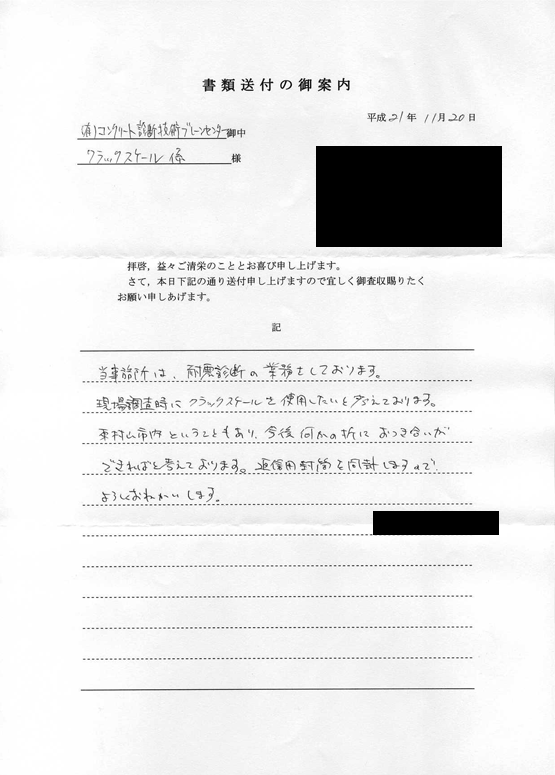 書類送付の御案内
平成21年11月20日
(有)コンクリート診断技術ブレーンセンター御中
クラックスケール 係 様
拝啓，益々ご清栄のこととお喜び申し上げます。
さて，本日下記の通り送付申し上げますので宜しく御査収賜りたく
お願い申しあげます。
記
当事務所は、耐震診断の業務をしております。
現場調査時にクラックスケールを使用したいと考えております。
東村山市内ということもあり、今後何かの折におつき合いが
できればと考えております。返信用封筒を同封しますので、
よろしくおねがいします。